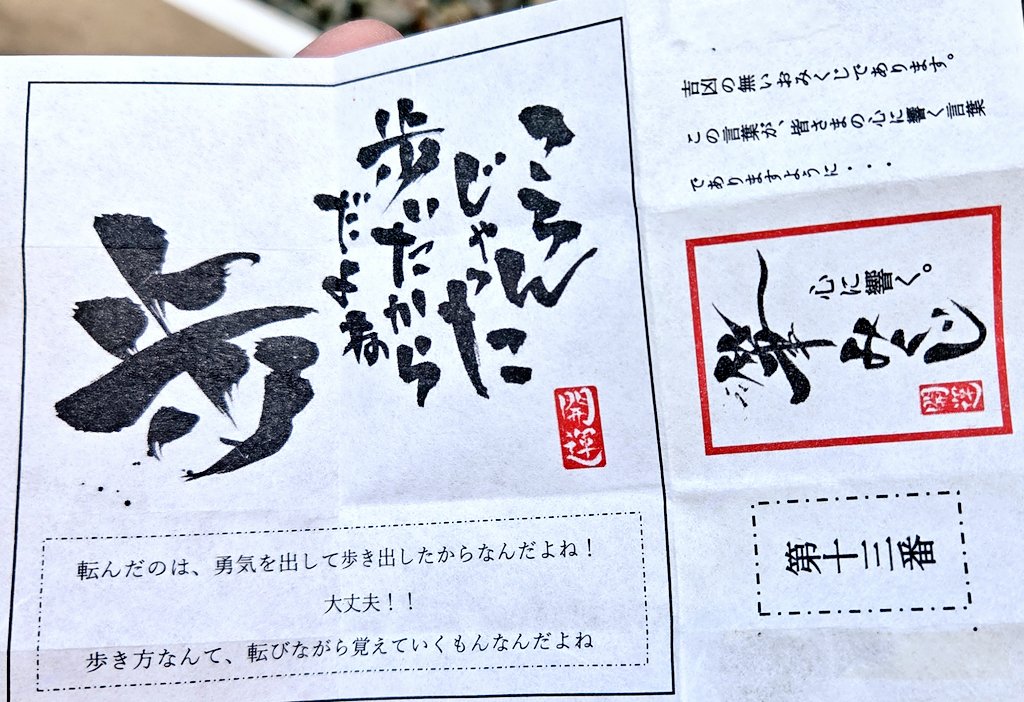 ころん
じゃった
歩いたから
だよね
歩
開運
転んだのは、勇気を出して歩き出したからなんだよね！
大丈夫！！
歩き方なんて、転びながら覚えていくもんなんだよね
吉凶の無いおみくじであります。
この言葉が、皆さまの心に響く言葉
でありますように・・・
心に響く。
筆みくじ
開運
第十三番